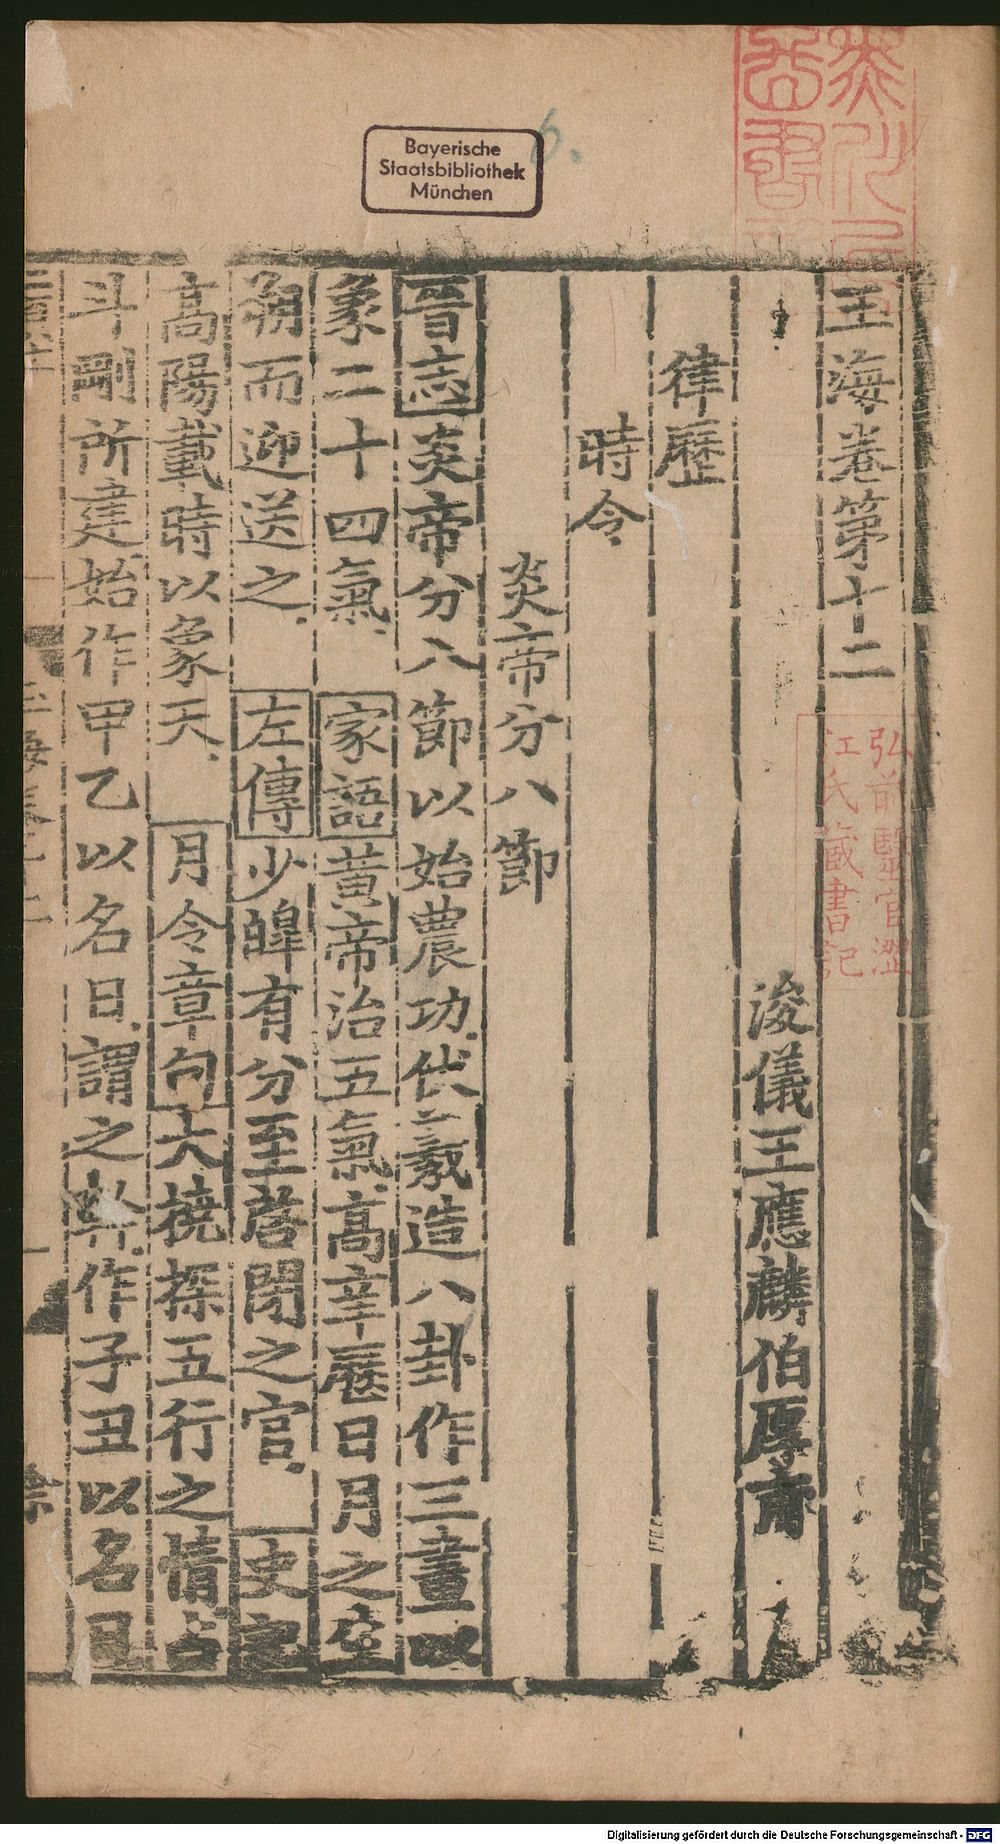 玉海卷第十二
浚儀王應麟伯厚甫
律歷
時令
炎帝分八節
晉志炎帝分八節以始農功伏羲造八卦作三畫以
象二十四氣 家語黃帝治五氣高辛歷日月之生
朔而迎送之 左傳少皞有分至啓閉之官 史記
高陽載時以象天 月令章句大橈探五行之情占
斗剛所建始作甲乙以名日謂之幹作子丑以名月
弘前醫官澀
江氏藏書記
Bayerische
Staatsbibliothek
München
6.
Digitalisierung gefördert durch die Deutsche Forschungsgemeinschaft - DFG